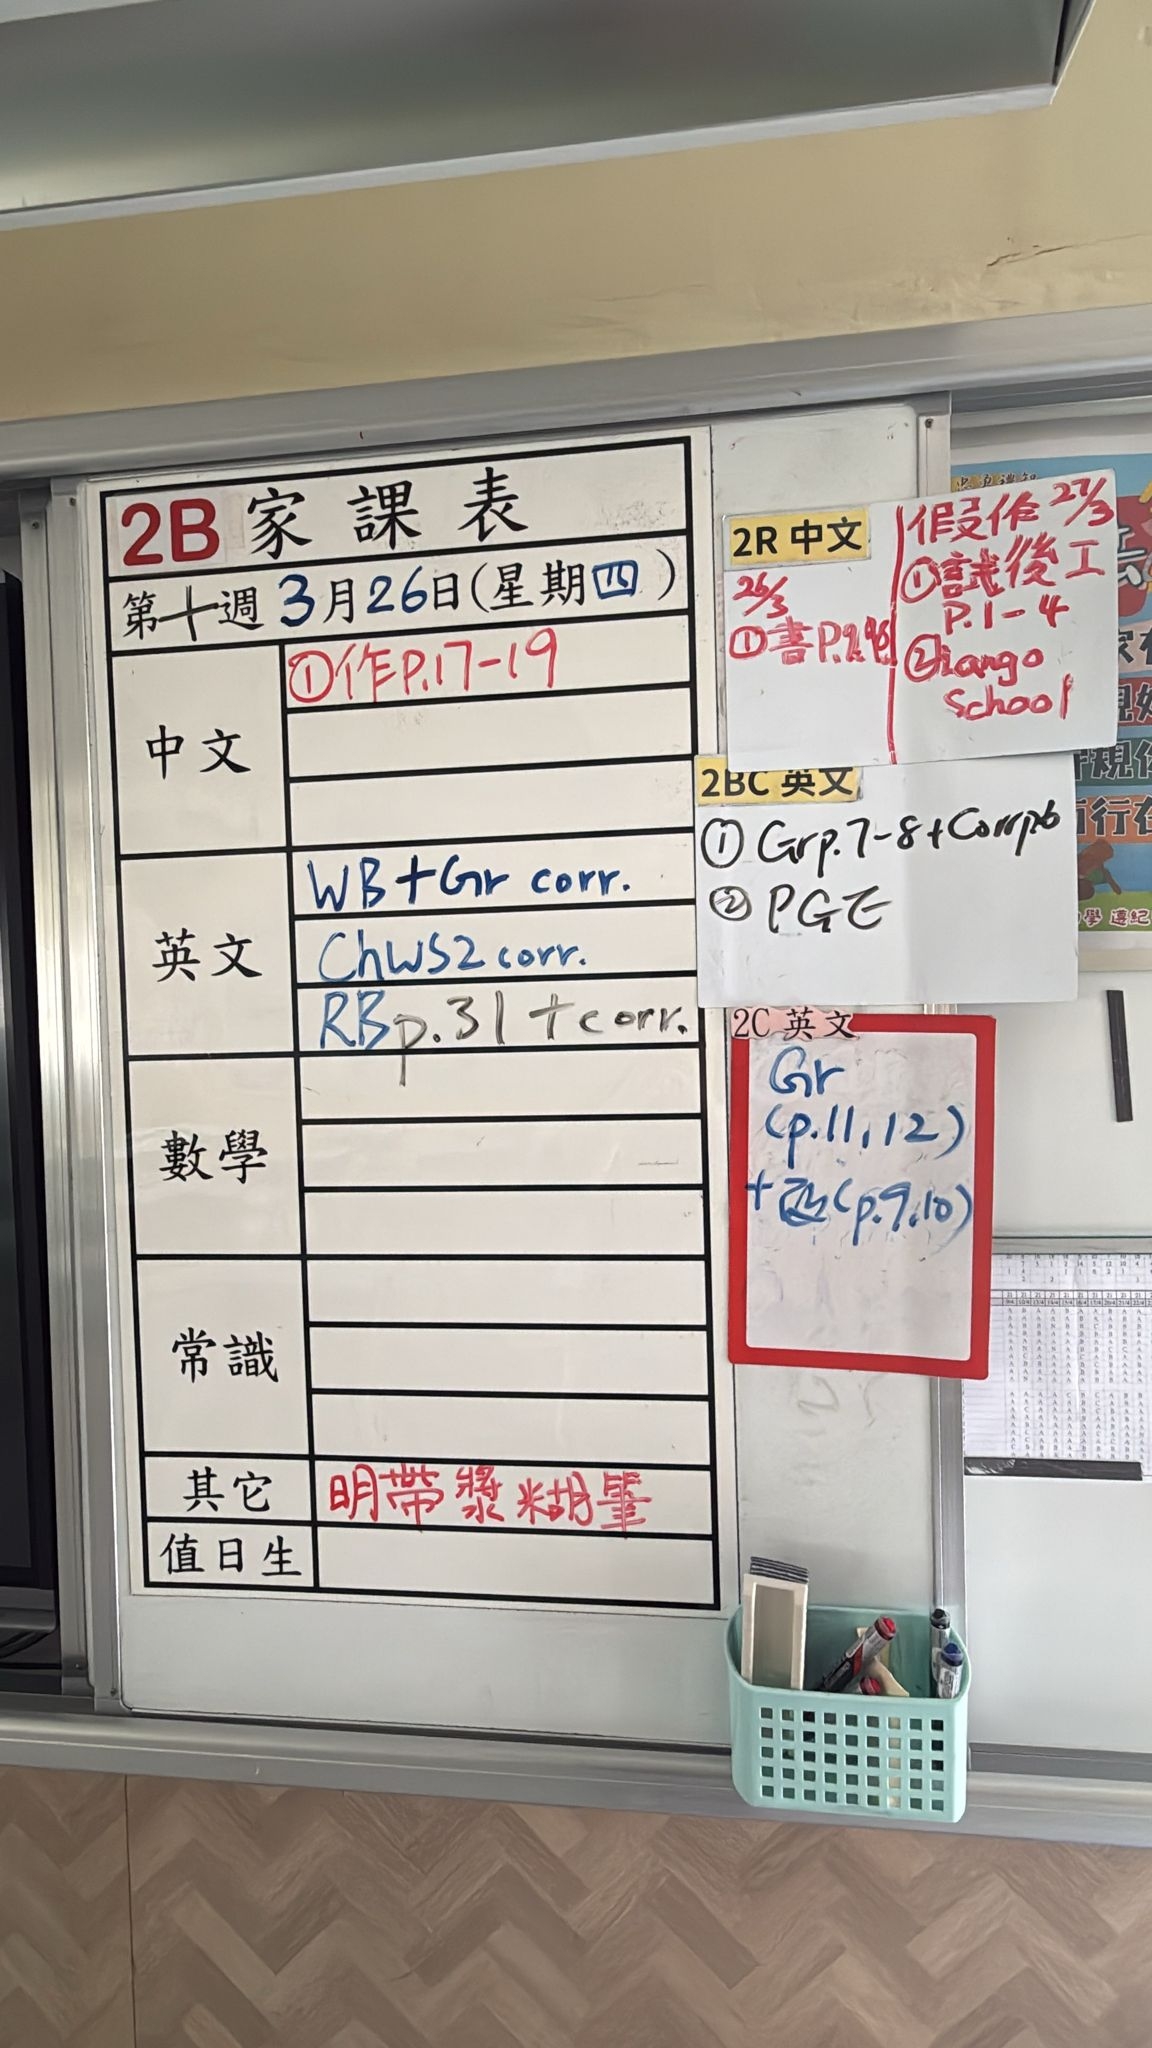 2B 家課表
第十週 3月26日(星期四)
中文
①作P.17-19
英文
WB+Gr corr.
ChWS2 corr.
RB p.31+corr.
數學
常識
其它
明帶漿糊筆
值日生
2R 中文
26/3
①書P.
假作 27/3
①試後工
P.1-4
②
School
2BC 英文
①Gr p.7-8+Corr p.6
②PGE
2C 英文
Gr
(p.11,12)
+改(p.9,10)